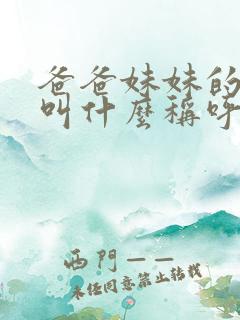 爸爸妹妹的
叫什麼稱呼
西門一一
未經同意禁止轉載